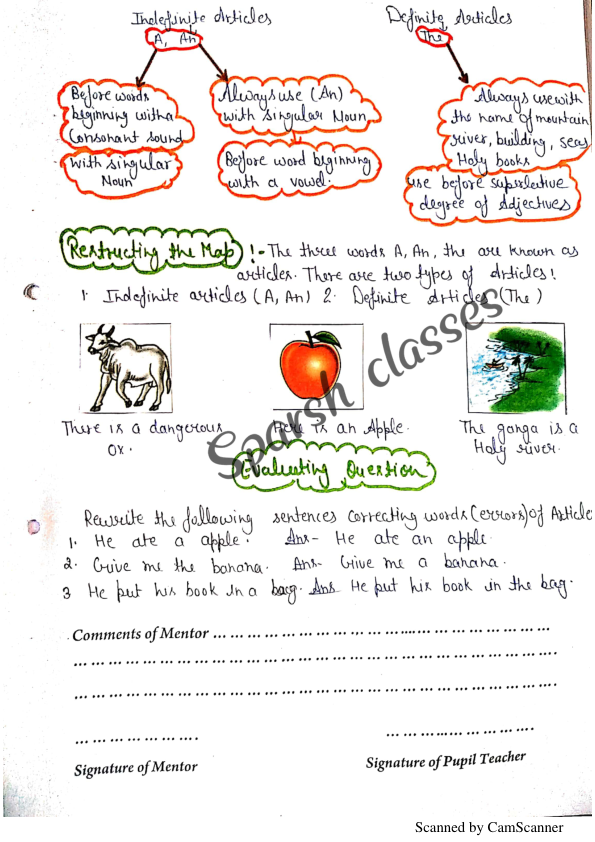 Indefinite Articles
A, An
Definite Articles
The
Before words
beginning with a
Consonant sound
with singular
Noun
Always use (An)
with singular Noun
Before word beginning
with a vowel.
Always use with
the name of mountain
river, building, seas
Holy books
use before superlective
degree of Adjectives
Restructing the Map !- The three words A, An, the are known as
articles. There are two types of Articles!
1. Indefinite articles (A, An) 2. Definite Articles (The)
There is a dangerous
Ox.
Here is an Apple.
The ganga is a
Holy river.
Sparsh classes
Evaluating Question
Rewrite the following sentences correcting words (errors) of Article
1. He ate a apple. Ans- He ate an apple.
2. Give me the banana. Ans- Give me a banana.
3 He put his book in a bag. Ans He put his book in the bag.
Comments of Mentor ... ... ... ... ... ... ... ... ... ... ... ... ... ... ... ...
... ... ... ... ... ... ... ... ... ... ... ... ... ... ... ... ... ... ... ... ...
... ... ... ... ... ... ... ... ... ... ... ... ... ... ... ... ... ... ... ... ...
... ... ... ... ... ... ... ... ... ... ... ... ...
Signature of Mentor
Signature of Pupil Teacher
Scanned by CamScanner